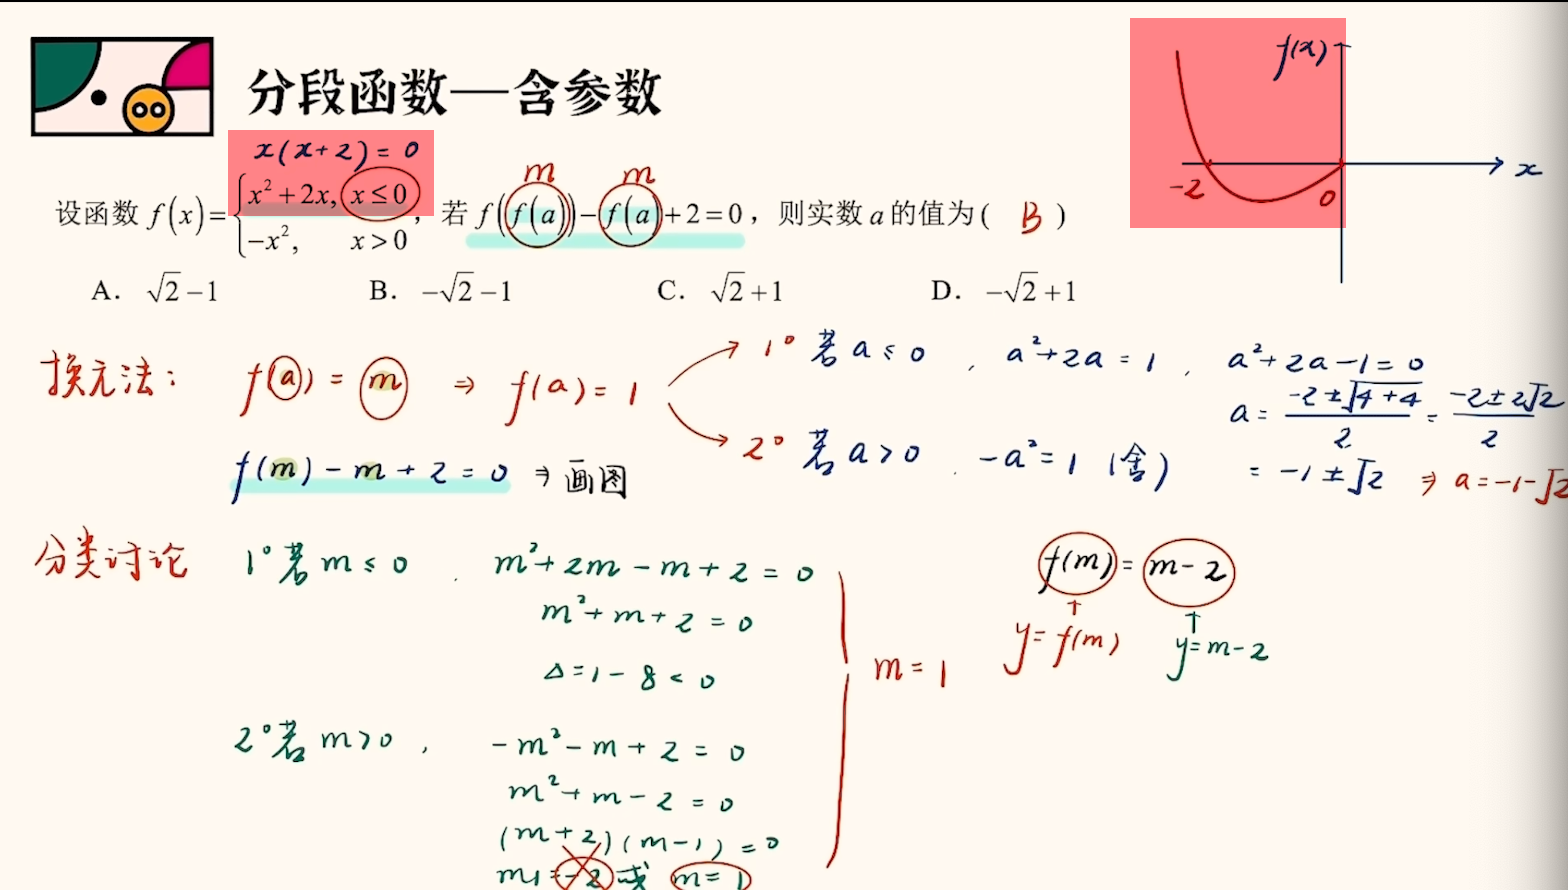 分段函数—含参数
f(x)
x
-2
0
x(x+2)=0
m m
设函数 f(x)={x²+2x, x≤0
-x², x>0
, 若 f(f(a))-f(a)+2=0, 则实数 a 的值为( B )
A. √2-1 B. -√2-1 C. √2+1 D. -√2+1
换元法: f(a)=m ⇒ f(a)=1
1° 若 a≤0, a²+2a=1, a²+2a-1=0
a=(-2±√(4+4))/2=(-2±2√2)/2
=-1±√2 ⇒ a=-1-√2
2° 若 a>0. -a²=1 (舍)
f(m)-m+2=0 ⇒ 画图
分类讨论 1° 若 m≤0. m²+2m-m+2=0
m²+m+2=0
Δ=1-8<0
2° 若 m>0, -m²-m+2=0
m²+m-2=0
(m+2)(m-1)=0
m1=-2 或 m=1
m=1
f(m)=m-2
↑ ↑
y=f(m) y=m-2